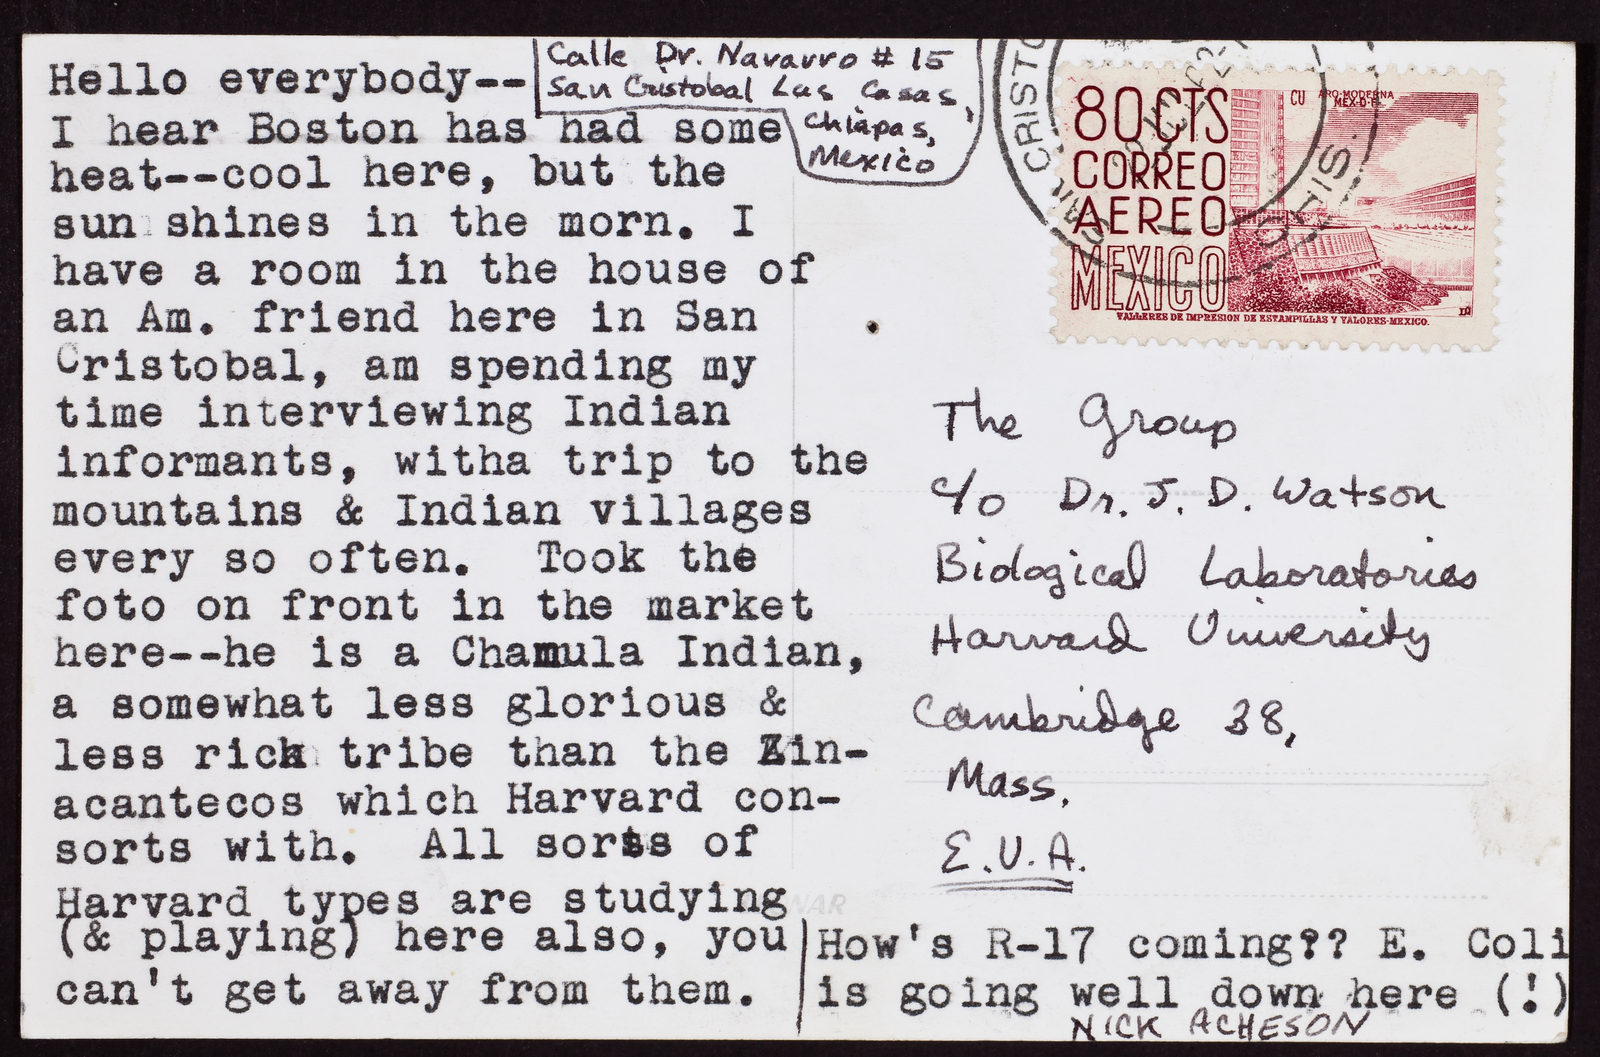 Calle Dr. Navarro # 15
San Cristobal Las Casas,
Chiapas,
Mexico
Hello everybody--
I hear Boston has had some
heat--cool here, but the
sun shines in the morn. I
have a room in the house of
an Am. friend here in San
Cristobal, am spending my
time interviewing Indian
informants, witha trip to the
mountains & Indian villages
every so often. Took the
foto on front in the market
here--he is a Chamula Indian,
a somewhat less glorious &
less rich tribe than the Zin-
acantecos which Harvard con-
sorts with. All sorts of
Harvard types are studying
(& playing) here also, you
can't get away from them.
How's R-17 coming?? E. Coli
is going well down here (!)
NICK ACHESON
80 CTS
CORREO
AEREO
MEXICO
CU ARQ-MODERNA
MEX-D-F
TALLERES DE IMPRESION DE ESTAMPILLAS Y VALORES-MEXICO.
SAN CRISTO
The Group
c/o Dr. J. D. Watson
Biological Laboratories
Harvard University
Cambridge 38,
Mass.
E.U.A.